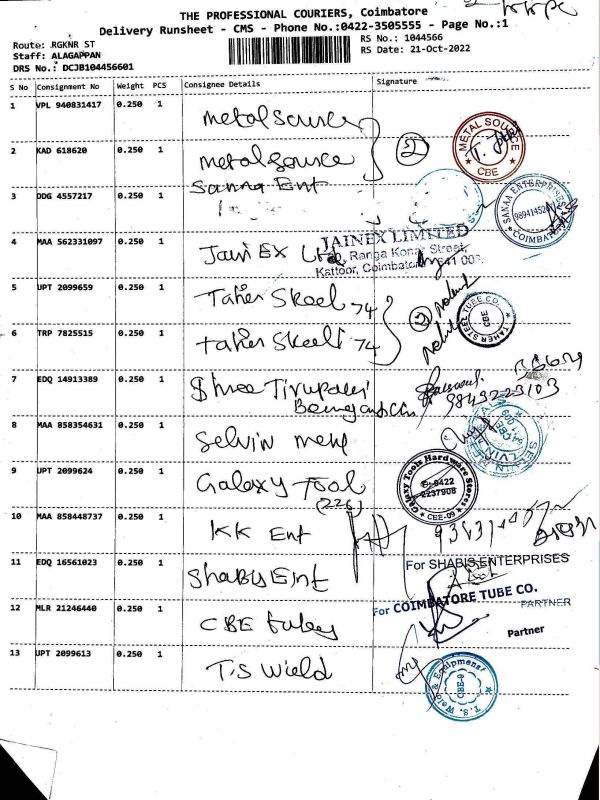 THE PROFESSIONAL COURIERS, Coimbatore
Delivery Runsheet - CMS - Phone No.:0422-3505555 - Page No.:1
Route: RGKNR ST
RS No.: 1044566
Staff: ALAGAPPAN
RS Date: 21-Oct-2022
DRS No.: DCJB104456601
S No Consignment No Weight PCS Consignee Details Signature
1 VPL 940831417 0.250 1 metal source
METAL SOURCE
CBE
2 KAD 618620 0.250 1 metal source
2
3 DDG 4557217 0.250 1 Sanna Ent
SANAA ENTERPRISES
COIMBATORE
4 MAA 562331097 0.250 1 Jain EX Ltd
JAINEX LIMITED
Ranga Konar Street,
Kattoor, Coimbatore 641 00
5 UPT 2099659 0.250 1 Taher Steel 74
TAHER STEEL TUBE CO.
CBE
6 TRP 7825515 0.250 1 taher steell 74
2
7 EDQ 14913389 0.250 1 Shree Tirupathi
9843223103
8 MAA 858354631 0.250 1 Selvin metl
SELVIN
CBE
9 UPT 2099624 0.250 1 Galaxy Tool
(226)
Galaxy Tools Hardware Stores
0422
2237908
CBE-09
10 MAA 858448737 0.250 1 KK Ent
11 EDQ 16561023 0.250 1 Shabis Ent
For SHABIS ENTERPRISES
PARTNER
12 MLR 21246440 0.250 1 CBE tubes
For COIMBATORE TUBE CO.
Partner
13 UPT 2099613 0.250 1 T.S Wield
T.S. Weld & Equipments
CBE-9